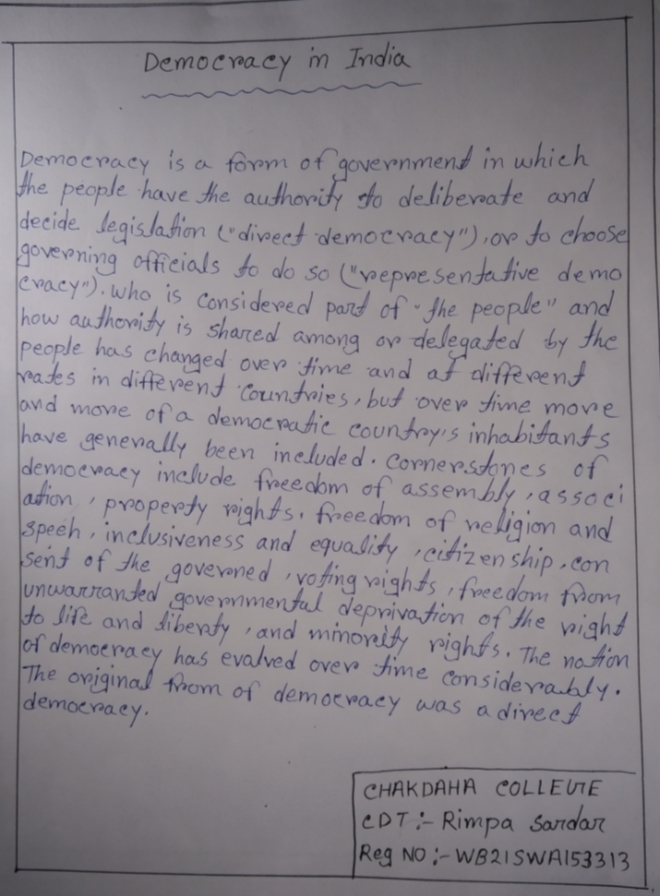 Democracy in India
Democracy is a form of government in which
the people have the authority to deliberate and
decide legislation ("direct democracy"), or to choose
governing officials to do so ("representative demo
cracy"). Who is considered part of "the people" and
how authority is shared among or delegated by the
people has changed over time and at different
rates in different countries, but over time more
and more of a democratic country's inhabitants
have generally been included. Cornerstones of
democracy include freedom of assembly, associ
ation, property rights, freedom of religion and
speeh, inclusiveness and equality, citizenship, con
sent of the governed, voting rights, freedom from
unwarranted governmental deprivation of the right
to life and liberty, and minority rights. The nation
of democracy has evalved over time considerably.
The original from of democracy was a direct
democracy.
CHAKDAHA COLLEGE
CDT :- Rimpa Sardar
Reg NO :- WB21SWA153313